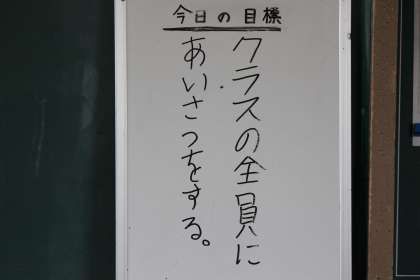 今日の目標
クラスの全員に
あいさつをする。